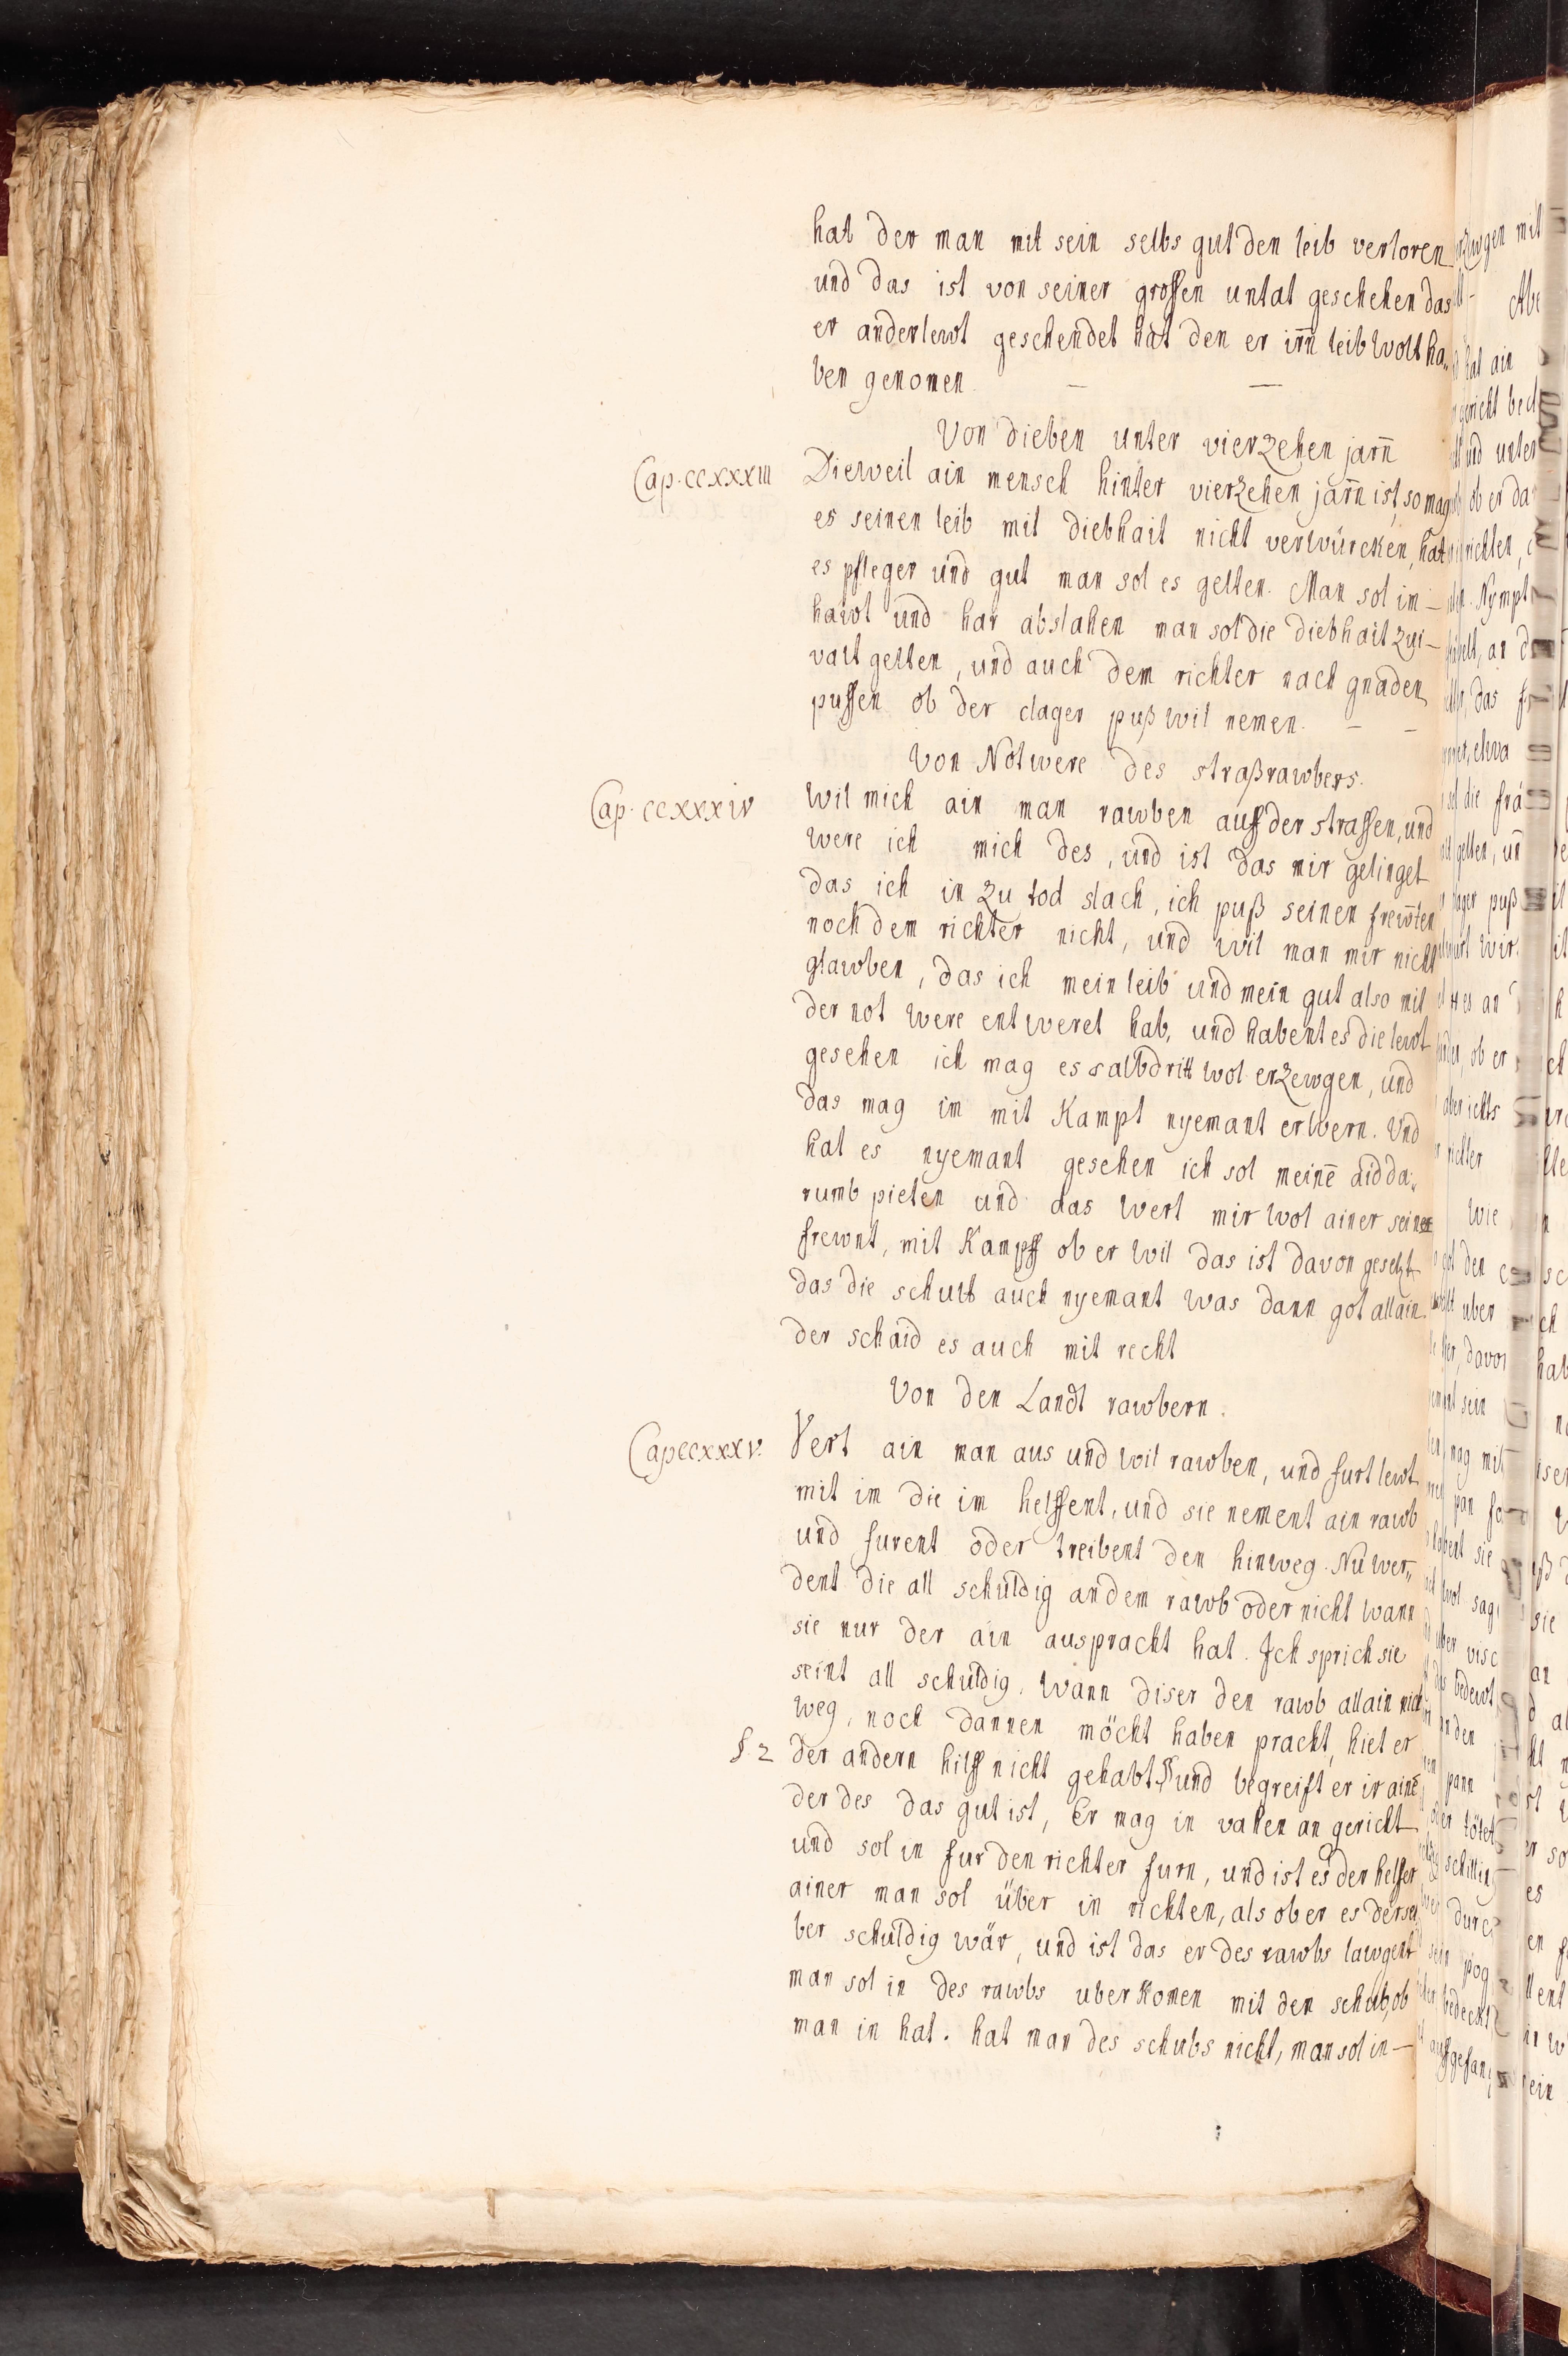 hat der man mit sein selbs gut den leib verloren
und das ist von seiner grossen untat geschehen das
er anderlewt geschendet hat den er irn̄ leib wolt ha„
ben genomen — —
Von dieben unter vierzehen jarn̄
Cap. CCXXXIII Dieweil ain mensch hinter vierzehen jarn̄ ist, so mag
es seinen leib mit diebhait nicht verwürcken, hat
es pfleger und gut man sol es gelten. Man sol im —
hawt und har abslahen man sol die diebhait zwi—
valt gelten, und auch dem richter nach gnaden
pussen ob der clager puß wil nemen. — —
Von Notwere des straßrawbers.
Cap. CCXXXIV Wil mich ain man rawben auff der strassen, und
were ich mich des, und ist das mir gelinget
das ich in zu tod slach, ich puß seinen frewn̄ten
noch dem richter nicht, und wil man mir nicht
glawben, das ich mein leib und mein gut also mit
der not were entweret hab, und habent es die lewt
gesehen ich mag es salbdritt wol erzewgen, und
das mag im mit Kampt nyemant erwern. Und
hat es nyemant gesehen ich sol meinē aid da„
rumb pieten und das wert mir wol ainer seiner
frewnt, mit Kampff ob er wil das ist davon gesetzt
das die schult auch nyemant was dann got allain
der schaid es auch mit recht
Von den Landt rawbern.
Cap CCXXXV. Vert ain man aus und wil rawben, und furt lewt
mit im die im helffent, und sie nement ain rawb
und furent oder treibent den hinweg. Nu wer„
dent die all schuldig an dem rawb oder nicht wann
sie nur der ain ausspracht hat. Ich sprich sie
seint all schuldig, wann diser den rawb allain nicht
weg, noch dannen möcht haben pracht, hiet er
§. 2 der andern hilff nicht gehabt § und begreift er ir ainē
der des das gut ist, Er mag in vahen an gericht
und sol in fur den richter furn, und ist es der helfer
ainer man sol über in richten, als ob er es dersel
ber schuldig wär, und ist das er des rawbs lawgent
man sol in des rawbs uberkomen mit den schub, ob
man in hat. hat man des schubs nicht, man sol in —